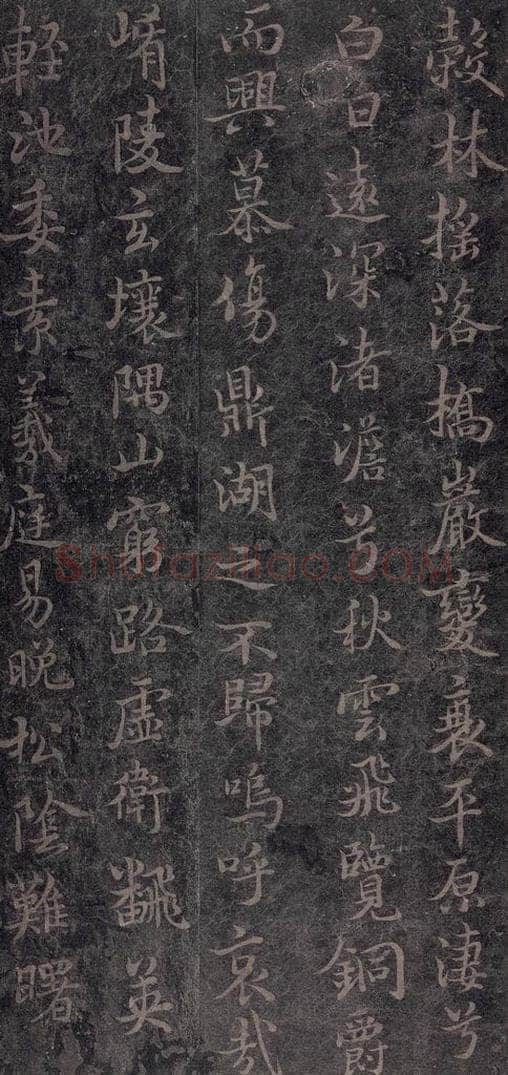 穀林搖落橋巖變衰平原淒兮
白日遠深渚澹兮秋雲飛覽銅爵
而興慕傷鼎湖之不歸嗚呼哀哉
崤陵玄壤隅山窮路虛衛飜英
輊池委素羲庭易晚松陰難曙
Shufaziliao.COM